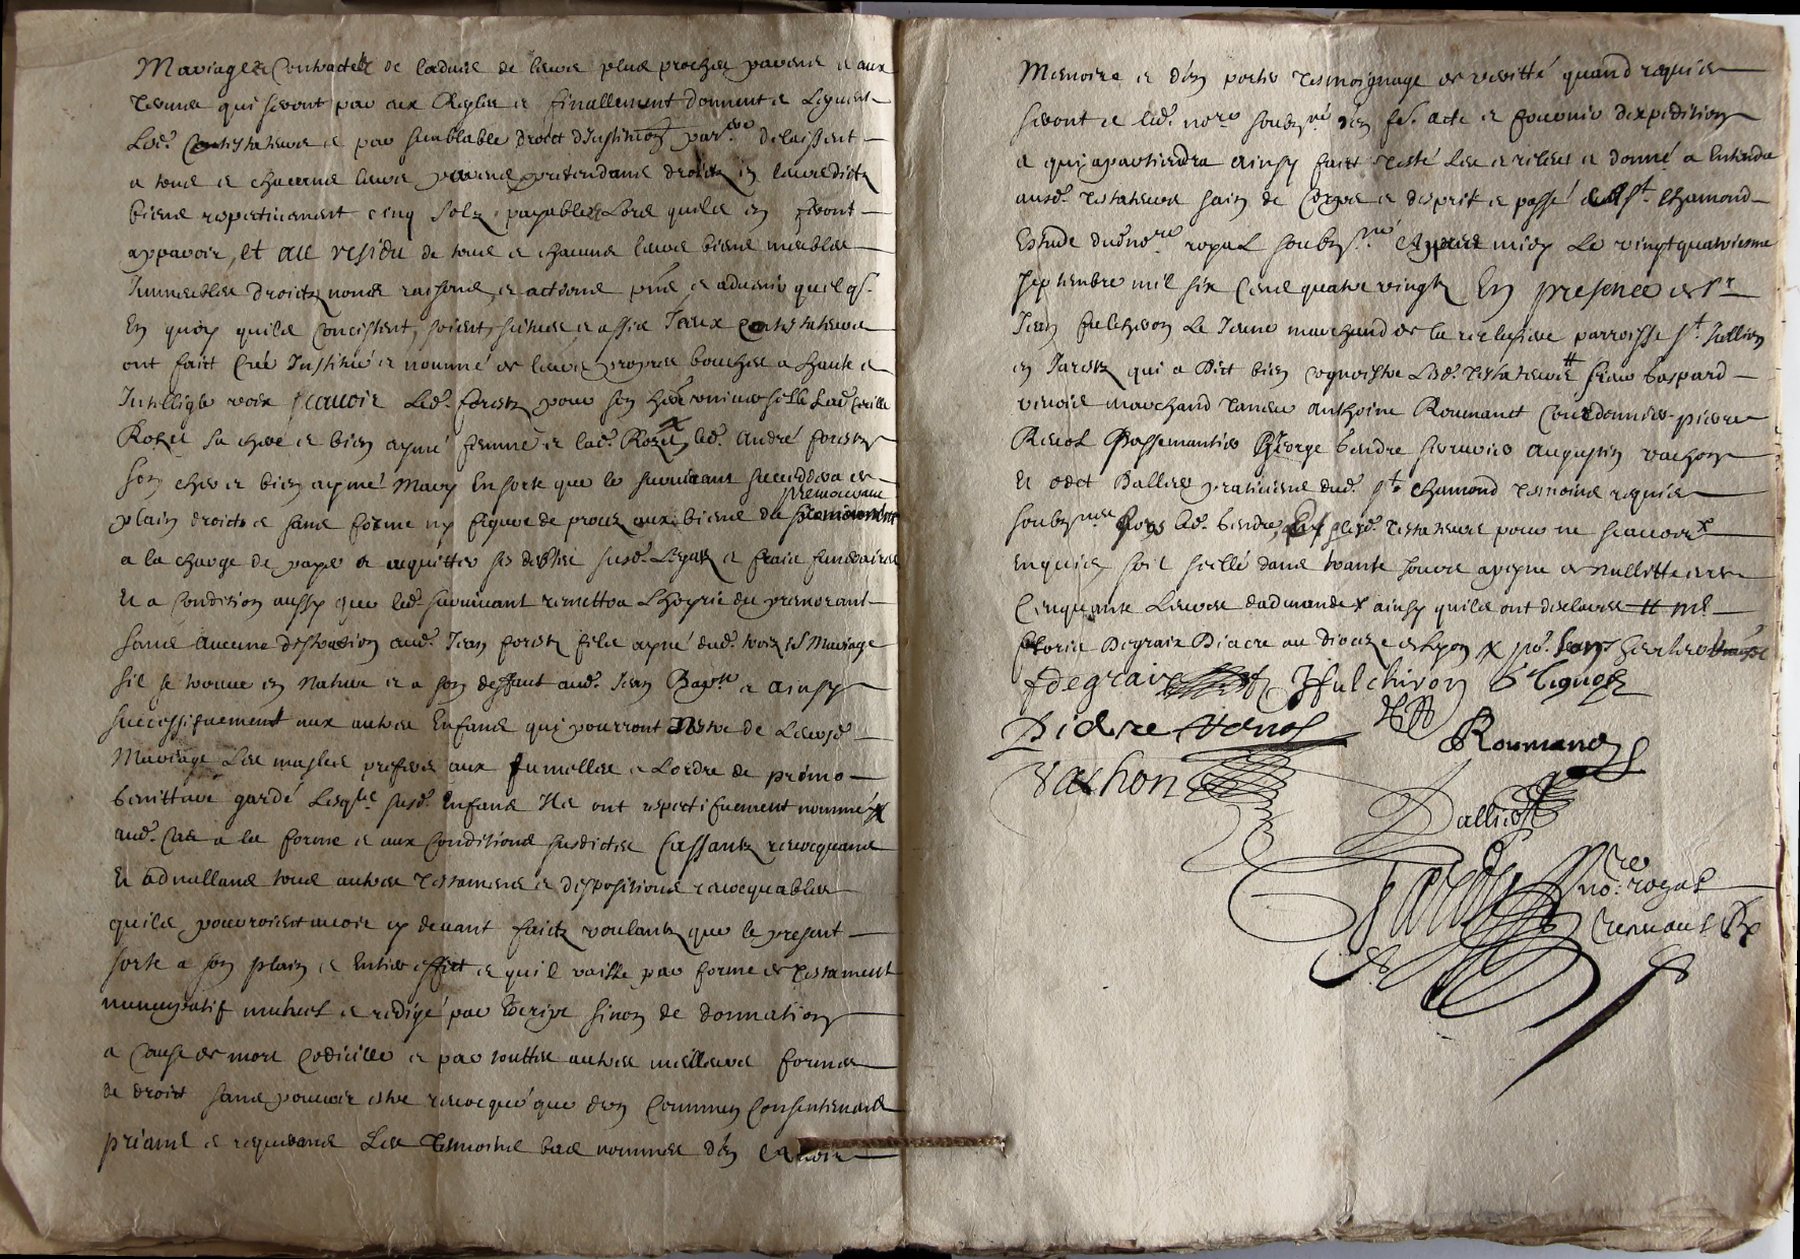 Mariages Contractes de ladvis de leurs plus proches parens et aux
termes qui seront par eux Reglés et finallement donnent et Leguent
Lesd. testateurs et par semblable droict dJnstitution delaissent
a tous et chacuns leurs parens pretendans droictz en leursdictz
biens respectivement cinq solz payables Lors quils en feront
apparoir, et au residu de tous et chacuns leurs biens meubles
Jmmeubles droictz noms raisons et actions pns et advenir quelq.
En quoy quils concistent, soient, situés et assis Jceux testateurs
ont faict Creé Jnstitué et nommé de leurs propres bouches a haute et
Jntelligle voix scavoir Led. forestz pour son heritiere universelle Lad.
Rozet sa chere et bien aymé femme et lad. Rozet led. André forestz
son cher et bien aymé Mary En sorte que le survivant succedera de
plain droict et sans forme ny figure de proces aux biens du premourant
a la charge de payer et acquitter ses debtes susd. Legatz et frais funeraires
Et a Condition aussy que led. survivant remettra Lhoyrie du premourant
sans aucune distraction aud. Jean forestz filz aymé dud. Mariage
sil se trouve en Nature et a son deffaut aud. Jean Bapte et ainsy
successifvement aux autres Enfans qui pourront Naistre de Leurd.
Mariage Les masles preferés aux fumelles et Lordre de primo
geniture gardé Lesqls susd. Enfans Jls ont respectifvement nommé
aud. Cas a la forme et aux Conditions susdictes Cassantz revocquans
Et adnullans tous autres testamens et dispositions revocquables
quils pourroient avoir cy devant faictz voulantz que le present
sorte a son plain et Entier effect et quil vaille par forme de testament
nuncupatif mutuel et redigé par Escript sinon de donnation
a Cause de mort Codicille et par touttes autres meilleures formes
de droict sans pouvoir estre revocqué que dun Commun Consentement
priants et requerans Les tesmoins bas nommés den avoir
Memoire et den porter tesmoignage de veritté quand requis
seront et led. nore soubzné den fe. acte et fournir dexpedition
a qui apartiendra ainsy faict testé Leu et releu et donné a Entendre
ausd. testateurs sains de Corps et desprit et passé a St. Chamond
Estude dud. nore royal soubzné apres midy Le vingtquatriesme
septembre mil six Cens quatre vingtz En presence de Sr.
Jean fulchiron Le Jeune marchand de la parroisse St. Jullien
en Jarestz qui a Dict bien cognoistre Lesd. testateurs # sieur gaspard
marchand taneur anthoine Roumand Cordonnier pierre
Passemantier George serrurier augustin vachon
Et odet Dallier praticiens dud. St. Chamond tesmoins requis
soubznés hors led. et lesd. testateurs pour ne scavoir
enquis soit scellé dans trante jours a peyne de nullitté et de
Cinquante Livres dadmande ainsy quils ont declarés # mre
Degraix Diacre au Dioceze de Lyon
fdegraix Jfulchiron
Pierre
Roumand
vachon
Dallier
nore. royal